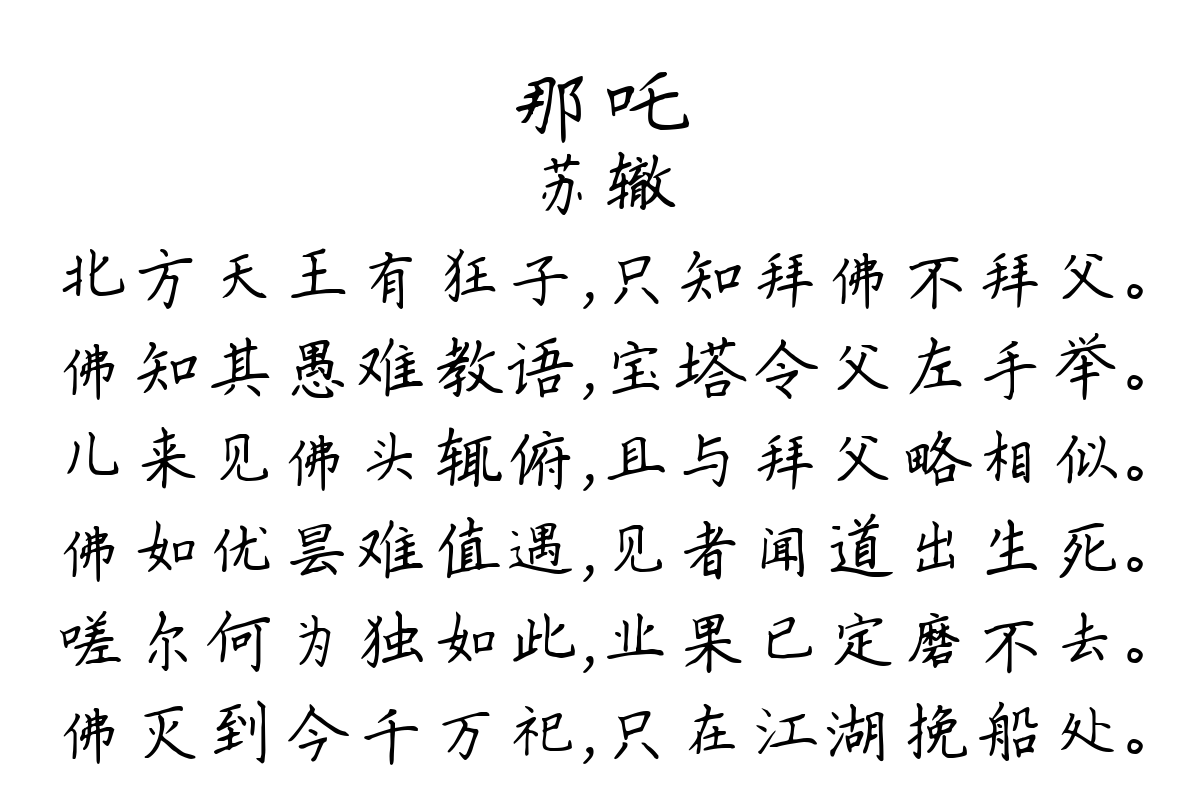 那吒
苏辙
北方天王有狂子,只知拜佛不拜父。
佛知其愚难教语,宝塔令父左手举。
儿来见佛头辄俯,且与拜父略相似。
佛如优昙难值遇,见者闻道出生死。
嗟尔何为独如此,业果已定磨不去。
佛灭到今千万祀,只在江湖挽船处。